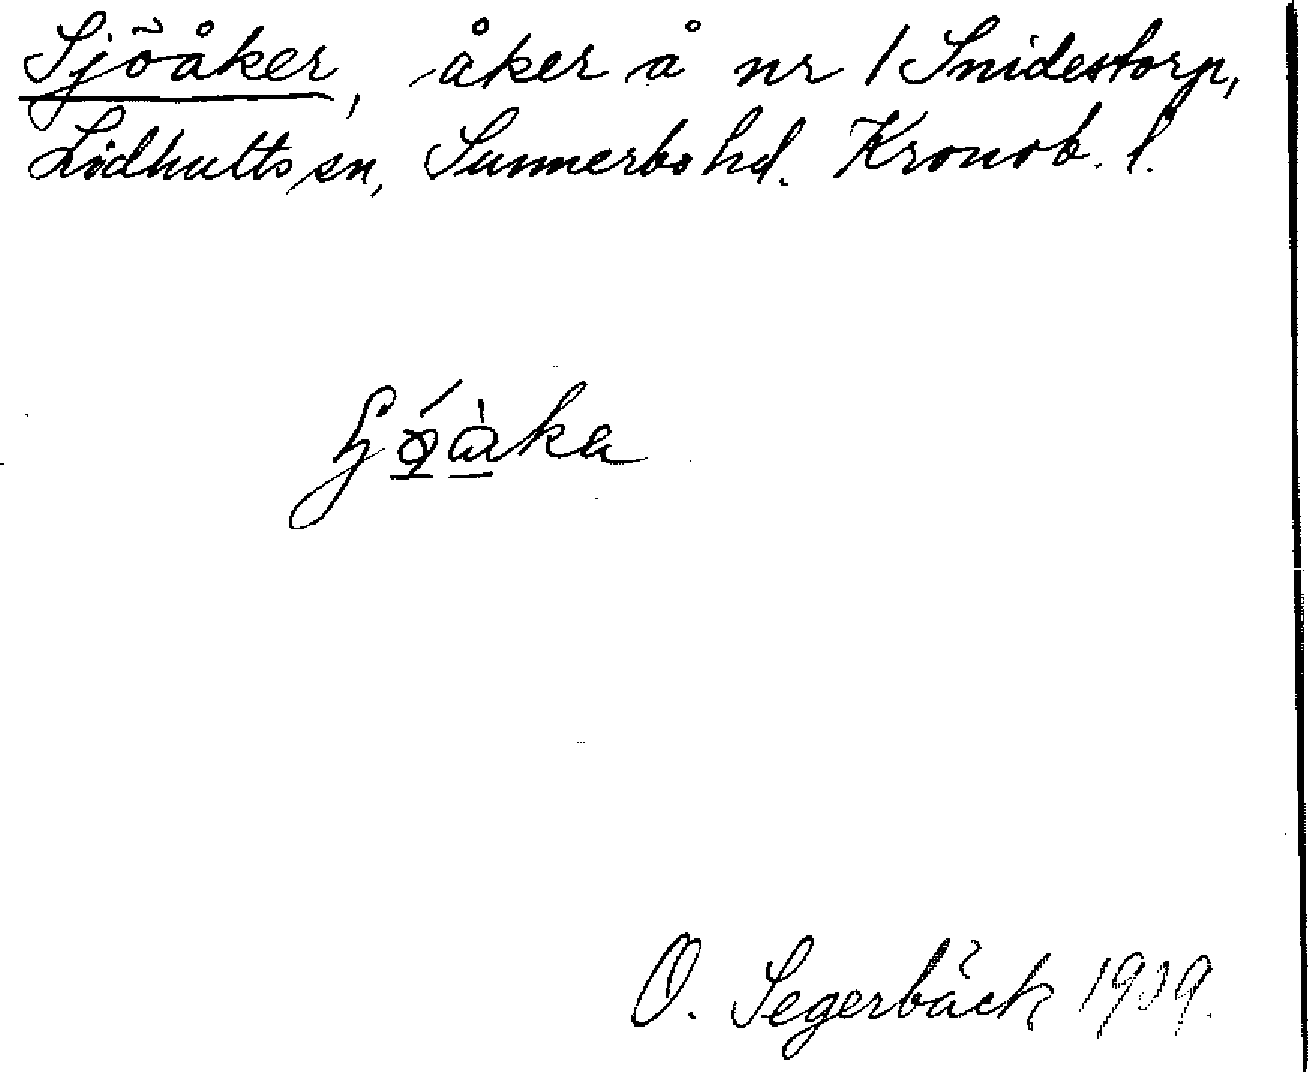 Sjöåker, åker å nr 1 Snidestorp,
Lidhults sn, Sunnerbo hd. Kronob. l.
O. Segerbäck 1939.